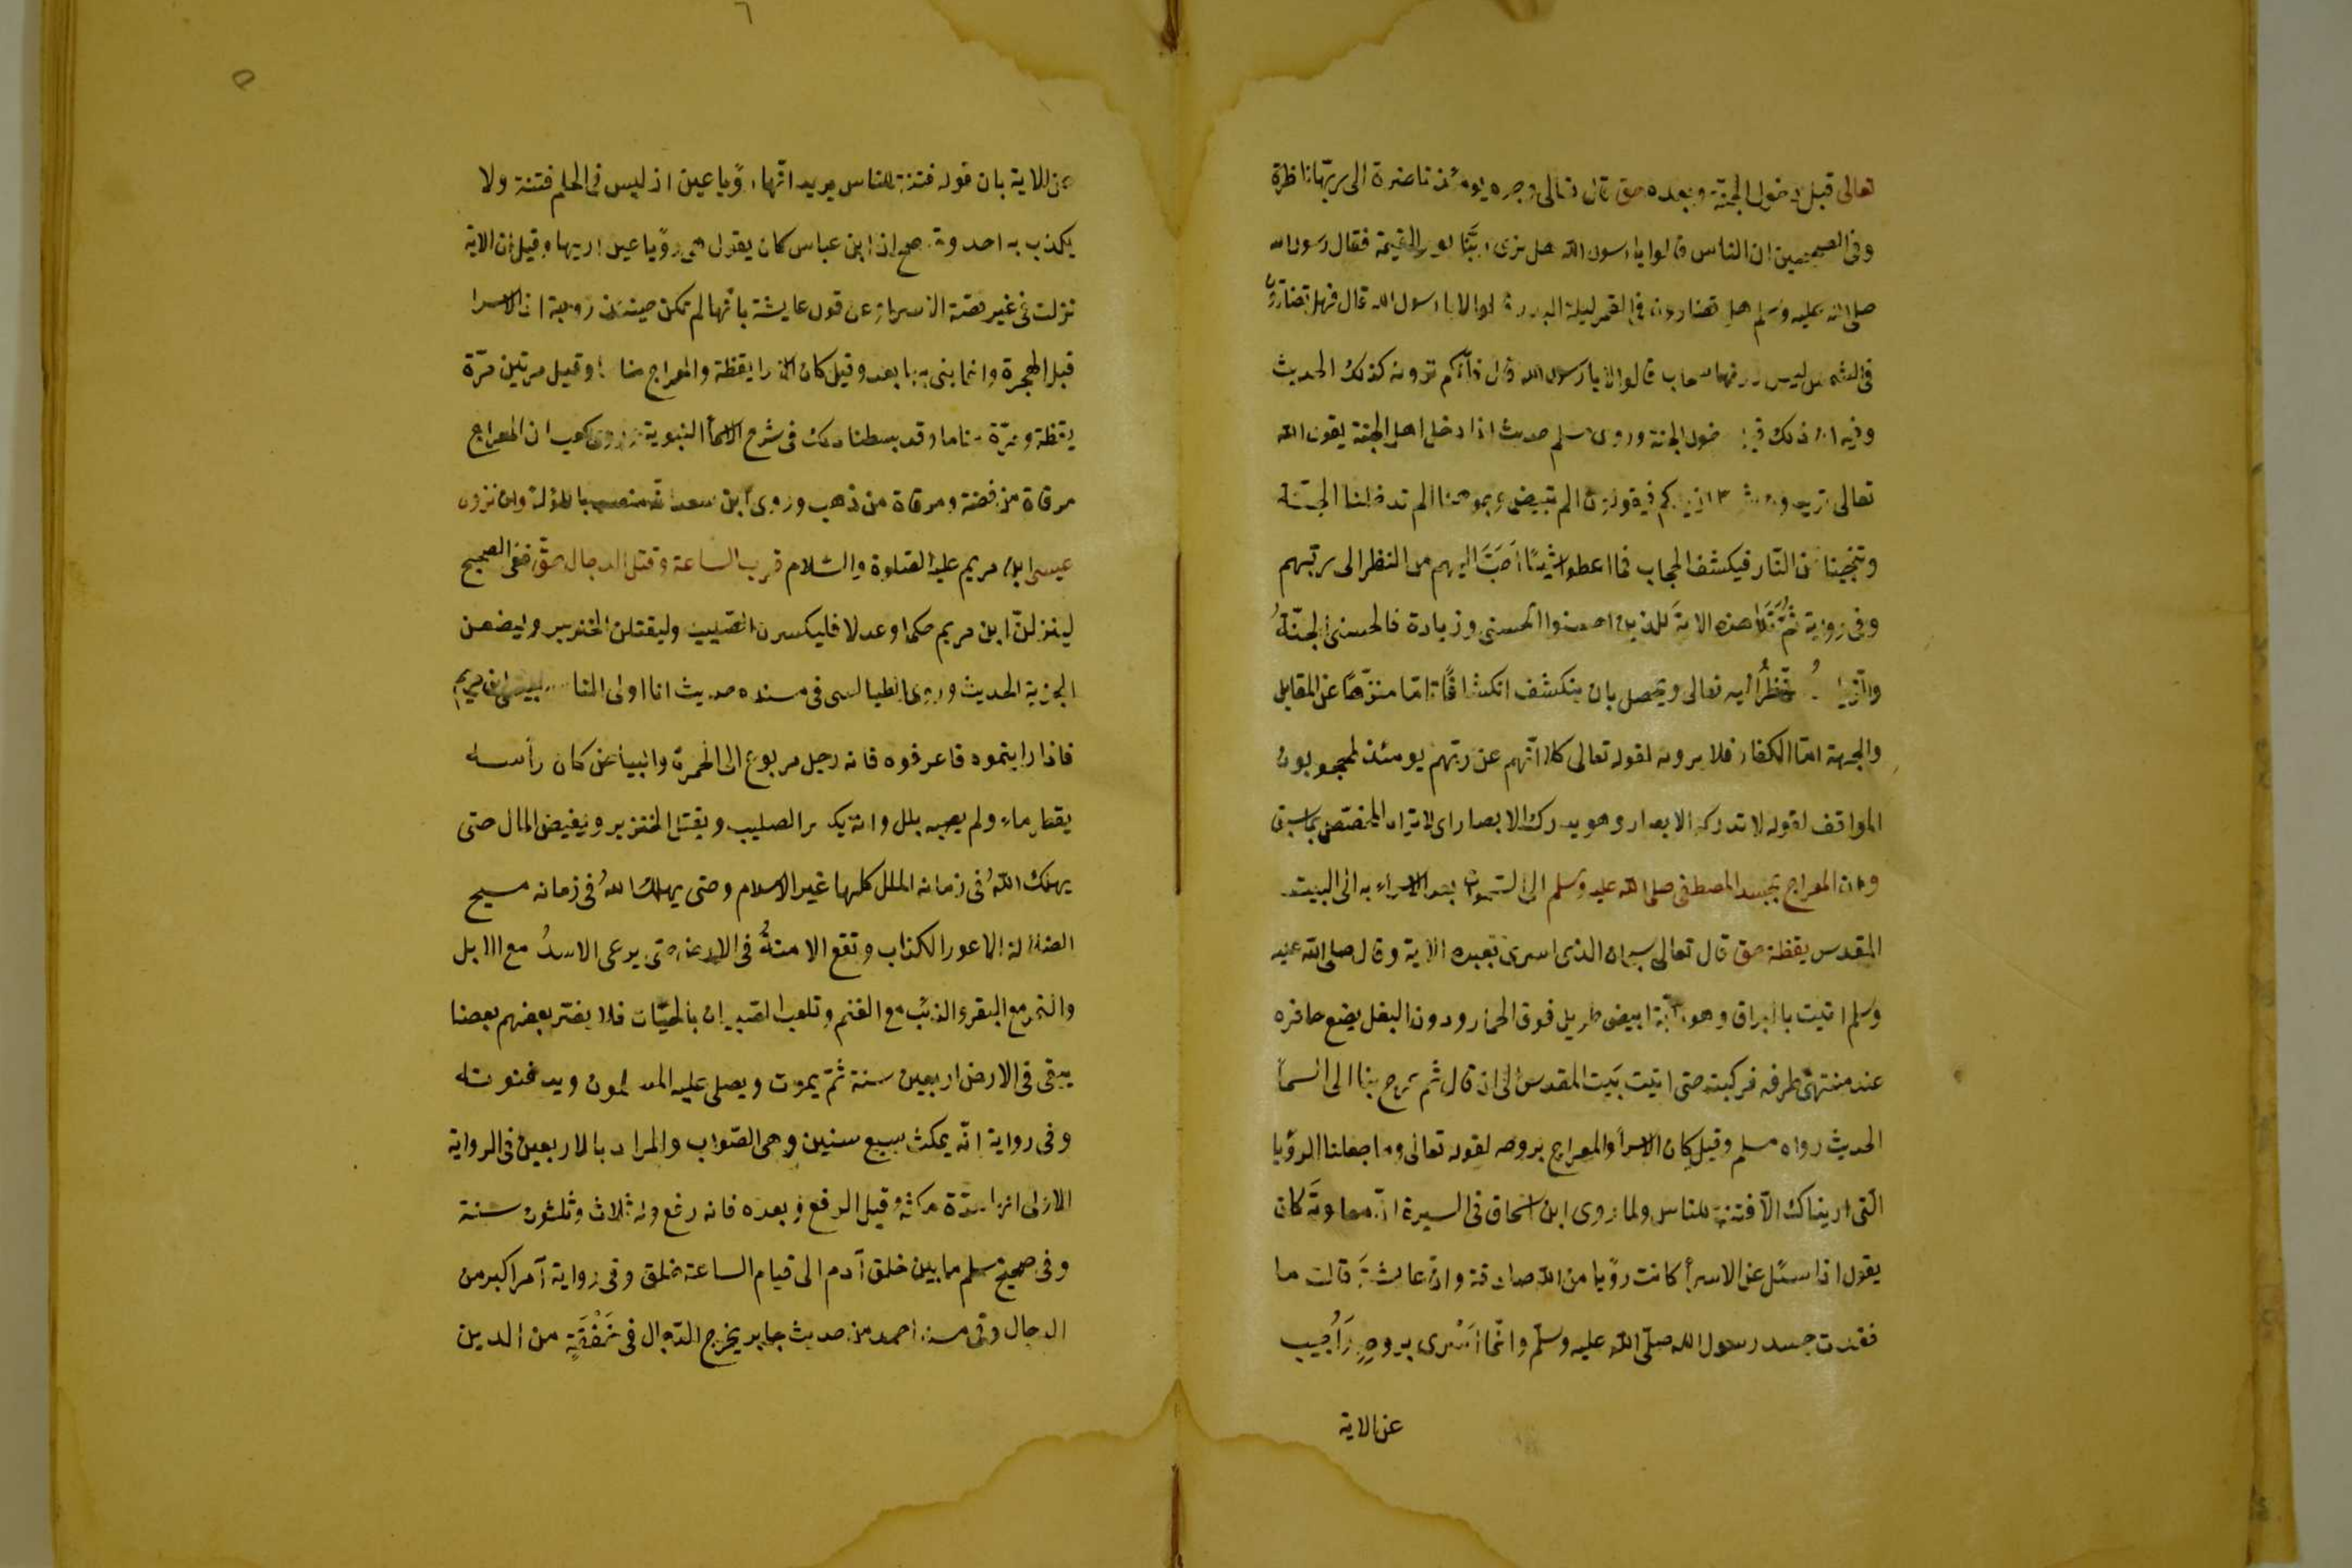 تعالى قبل دخول الجنة وبعده حق قال تعالى وجوه يومئذ ناضرة الى ربها ناظرة
وفى الصحيحين ان الناس قالوا يا رسول الله هل نرى ربنا يوم القيمة فقال رسول الله
صلى الله عليه وسلم هل تضارون فى القمر ليلة البدر قالوا لا يا رسول الله قال فهل تضارون
فى الشمس ليس دونها سحاب قالوا لا يا رسول الله قال فانكم ترونه كذلك الحديث
وفيه ان ذلك قبل دخول الجنة وروى مسلم حديث اذا دخل اهل الجنة الجنة يقول الله
تعالى تريدون شيئا ازيدكم فيقولون الم تبيض وجوهنا الم تدخلنا الجنة
وتنجينا من النار فيكشف الحجاب فما اعطوا شيئًا اَحَبَّ اليهم من النظر الى ربهم
وفى رواية ثُمَّ تَلَا هذه الاية للذين احسنوا الحسنى وزيادة فالحسنى الجنّةُ
والزيادة النظرُ اليه تعالى ويحصل بان ينكشف انكشافًا تاما منزّهًا عن المقابل
والجهة امّا الكفار فلا يرونه لقوله تعالى كلا انّهم عن ربّهم يومئذ لمحجوبون
المواقف لقوله لا تدركه الابصار وهو يدرك الابصار اى لا تراه المختص بما سبق
وان المعراج بجسد المصطفى صلى الله عليه وسلم الى السموات بعد الاسراء به الى البيت
المقدس يقظة حق قال تعالى سبحان الذى اسرى بعبده الاية وقال صلى الله عليه
وسلم اتيت بالبراق وهو دابّة ابيض طويل فوق الحمار ودون البغل يضع حافره
عند منتهى طرفه فركبته حتى اتيت بَيت المقدس الى ان قال ثم عرج بنا الى السمأ
الحديث رواه مسلم وقيل كان الاسرأ والمعراج بروحه لقوله تعالى وما جعلنا الرؤيا
الّتى اريناك الّا فتنة للناس ولما روى ابن اسحاق فى السيرة انّ معاويَةَ كان
يقول اذا سئل عن الاسرأ كانت رؤيا من الله صادقة وان عائشةَ قالت ما
فقدت جسد رسول الله صلّى الله عليه وسلّم وانّما اُسْرى بروحِهِ وَاُجيب
عن الاية
عن الاية بان قوله فتنة للناس يريد انّها رؤيا عين اذ ليس فى الحلم فتنة ولا
يكذب به احد وقد صح ان ابن عباس كان يقول هى رؤيا عين اريها وقيل ان الاية
نزلت فى غير قصة الاسراء وعن قول عايشة بانّها لم تكن حينئذ زوجة اذ الاسرا
قبل الهجرة وانما بنى بها بعد وقيل كان الاسرا يقظة والمعراج مناما وقيل مرتين مرّة
يقظة ومرّة مناما وقد بسطنا ذلك فى شرح الاسمأ النبوية وروى كعب ان المعراج
مرقاة من فضة ومرقاة من ذهب وروى ابن سعد انه منصب باللؤلؤ وان نزول
عيسى ابن مريم عليه الصلوة والسلام قرب الساعة وقتل الدجال حقّ ففى الصحيح
لينزلنّ ابن مريم حكما وعدلا فليكسرن الصّليب وليقتلن الخنزير وليضعن
الجزية الحديث وروى الطيالسى فى مسنده حديث انا اولى الناس بعيسى ابن مريم
فاذا رايتموه فاعرفوه فانه رجل مربوع الى الحمرة والبياض كان رأسه
يقطر ماء ولم يصبه بلل وانه يكسر الصليب ويقتل الخنزير ويفيض المال حتى
يهلك اللهُ فى زمانه الملل كلها غير الاسلام وحتى يهلك اللهُ فى زمانه مسيح
الضلالة الاعور الكذاب وتقع الامنةُ فى الارض حتى يرعى الاسدُ مع الابل
والنمر مع البقر والذئب مع الغنم وتلعب الصّبيان بالحيّات فلا يضّر بعضهم بعضا
يبقى فى الارض اربعين سنة ثمّ يموت ويصلى عليه المسلمون ويدفنونه
وفى رواية انّه يمكث سبع سنين وهى الصّواب والمراد بالاربعين فى الرواية
الاولى انها مدّة مكثه قبل الرفع وبعده فانه رفع وله ثلاث وثلثون سنة
وفى صحيح مسلم ما بين خلق آدم الى قيام الساعة خلق وفى رواية آمر اكبر من
الدجال وفى مسند احمد من حديث جابر يخرج الدّجال فى خَفْقَةٍ من الدين